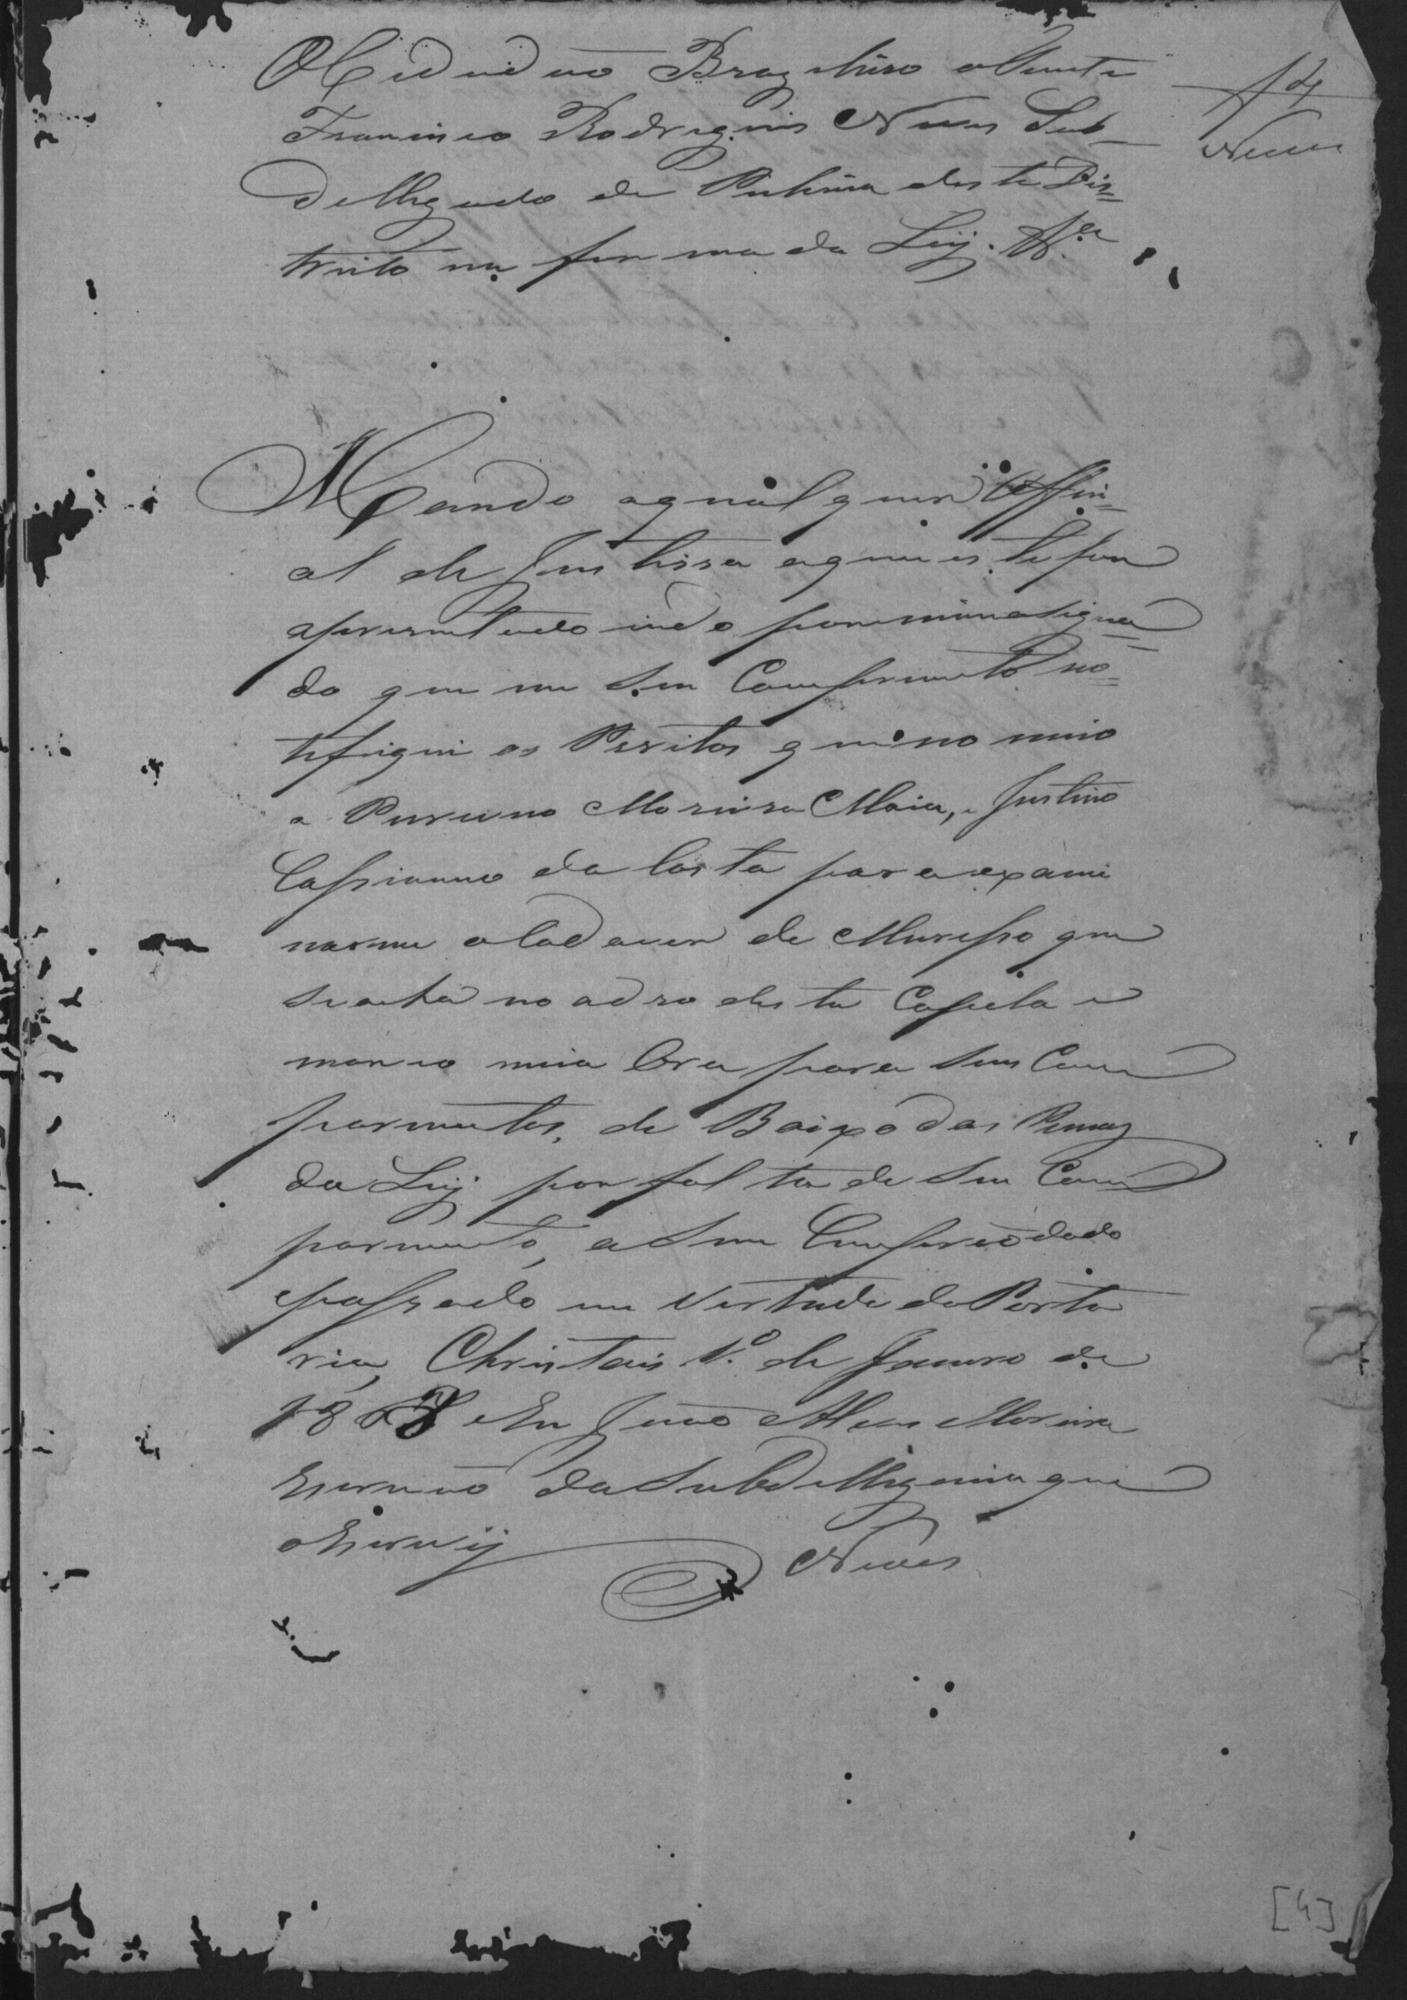 O Cidadão Brazileiro Vicente
Francisco Rodrigues Neves Sub-
dellegado de Pulisia deste Dis=
trito na forma da Ley. &.ª
f 4
Neves
Mando aqualquer Offici=
al de Justissa aquem este for
aprezentado indo por mim asigna=
do que em seu Comprimento no=
tefique os Peritos que nomeio
a Pureano Moreira Maia, e Justino
Cassianno da Costa para exami
narem o Cadaver de Muresso que
seacha no adro desta Capela e
marco meia Ora para seus Com
parmentos, de Baixo das Pennas
da Ley por falta de seu Com
parmento, a seu Comprido dado
e passado em Vertude da Porta
ria, Christais 1.º de Janeiro de
1868 Eu João Alves Moreira
Escrivão da Subdellegencia que
o Escrevÿ
Neves
[4]